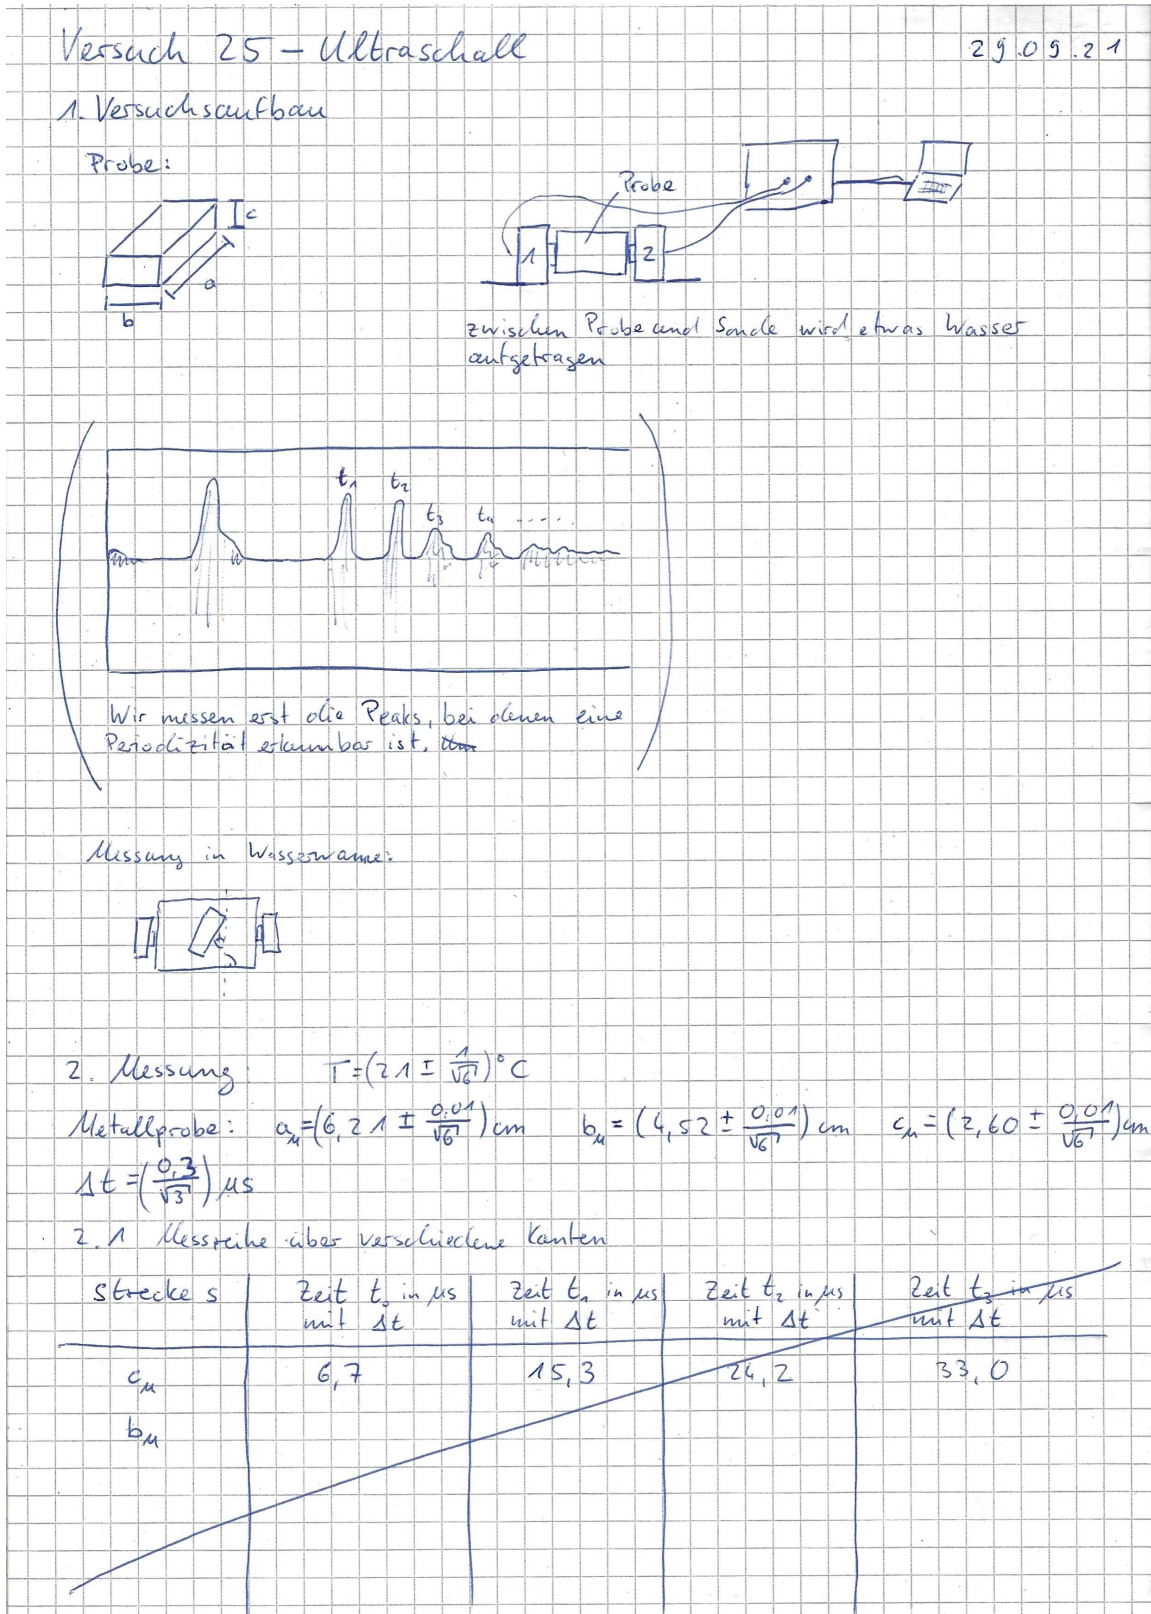 Versuch 25 – Ultraschall 29.09.21
1. Versuchsaufbau
Probe:
c
a
b
Probe
1
2
zwischen Probe und Sonde wird etwas Wasser
aufgetragen
t₁ t₂ t₃ t₄ .....
Wir messen erst die Peaks, bei denen eine
Periodizität erkennbar ist.
Messung in Wasserwanne:
2. Messung T=(21 ± 1/√6)°C
Metallprobe: a_M=(6,21 ± 0,01/√6) cm b_M = (4,52 ± 0,01/√6) cm c_M = (2,60 ± 0,01/√6) cm
Δt = (0,3/√3) μs
2.1 Messreihe über verschiedene Kanten
Strecke s Zeit t₀ in μs Zeit t₁ in μs Zeit t₂ in μs Zeit t₃ in μs
mit Δt mit Δt mit Δt mit Δt
c_M 6,7 15,3 24,2 33,0
b_M